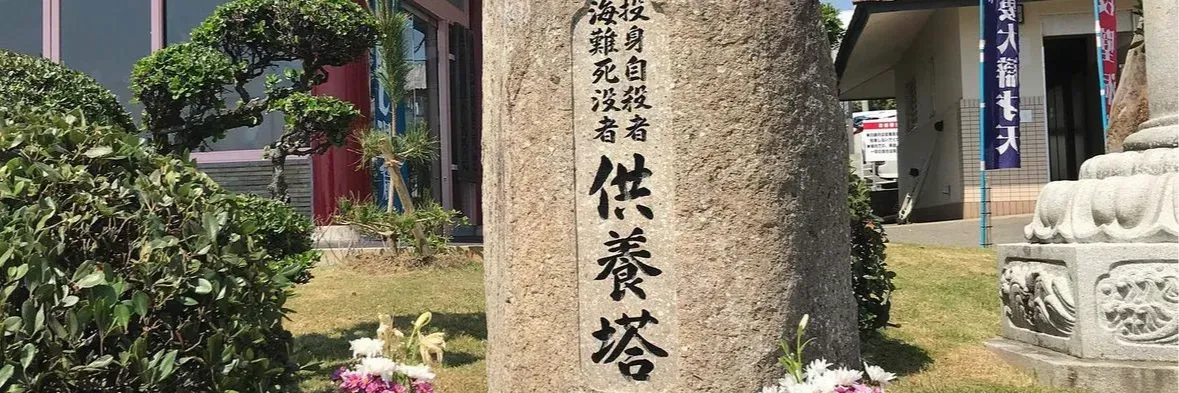 投身自殺者
海難死没者
供養塔
大辯才天